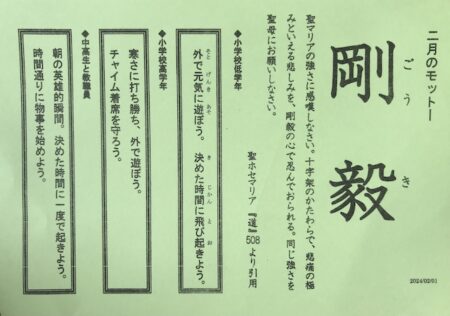 二月のモットー
剛毅
ごうき
2024/02/01
聖マリアの強さに感嘆しなさい。十字架のかたわらで、悲痛の極
みといえる悲しみを、剛毅の心で忍んでおられる。同じ強さを
聖母にお願いしなさい。
聖ホセマリア『道』508より引用
◆小学校低学年
外で元気に遊ぼう。 決めた時間に飛び起きよう。
そと げんき あそ き じかん と お
◆小学校高学年
寒さに打ち勝ち、外で遊ぼう。
チャイム着席を守ろう。
◆中高生と教職員
朝の英雄的瞬間。決めた時間に一度で起きよう。
時間通りに物事を始めよう。